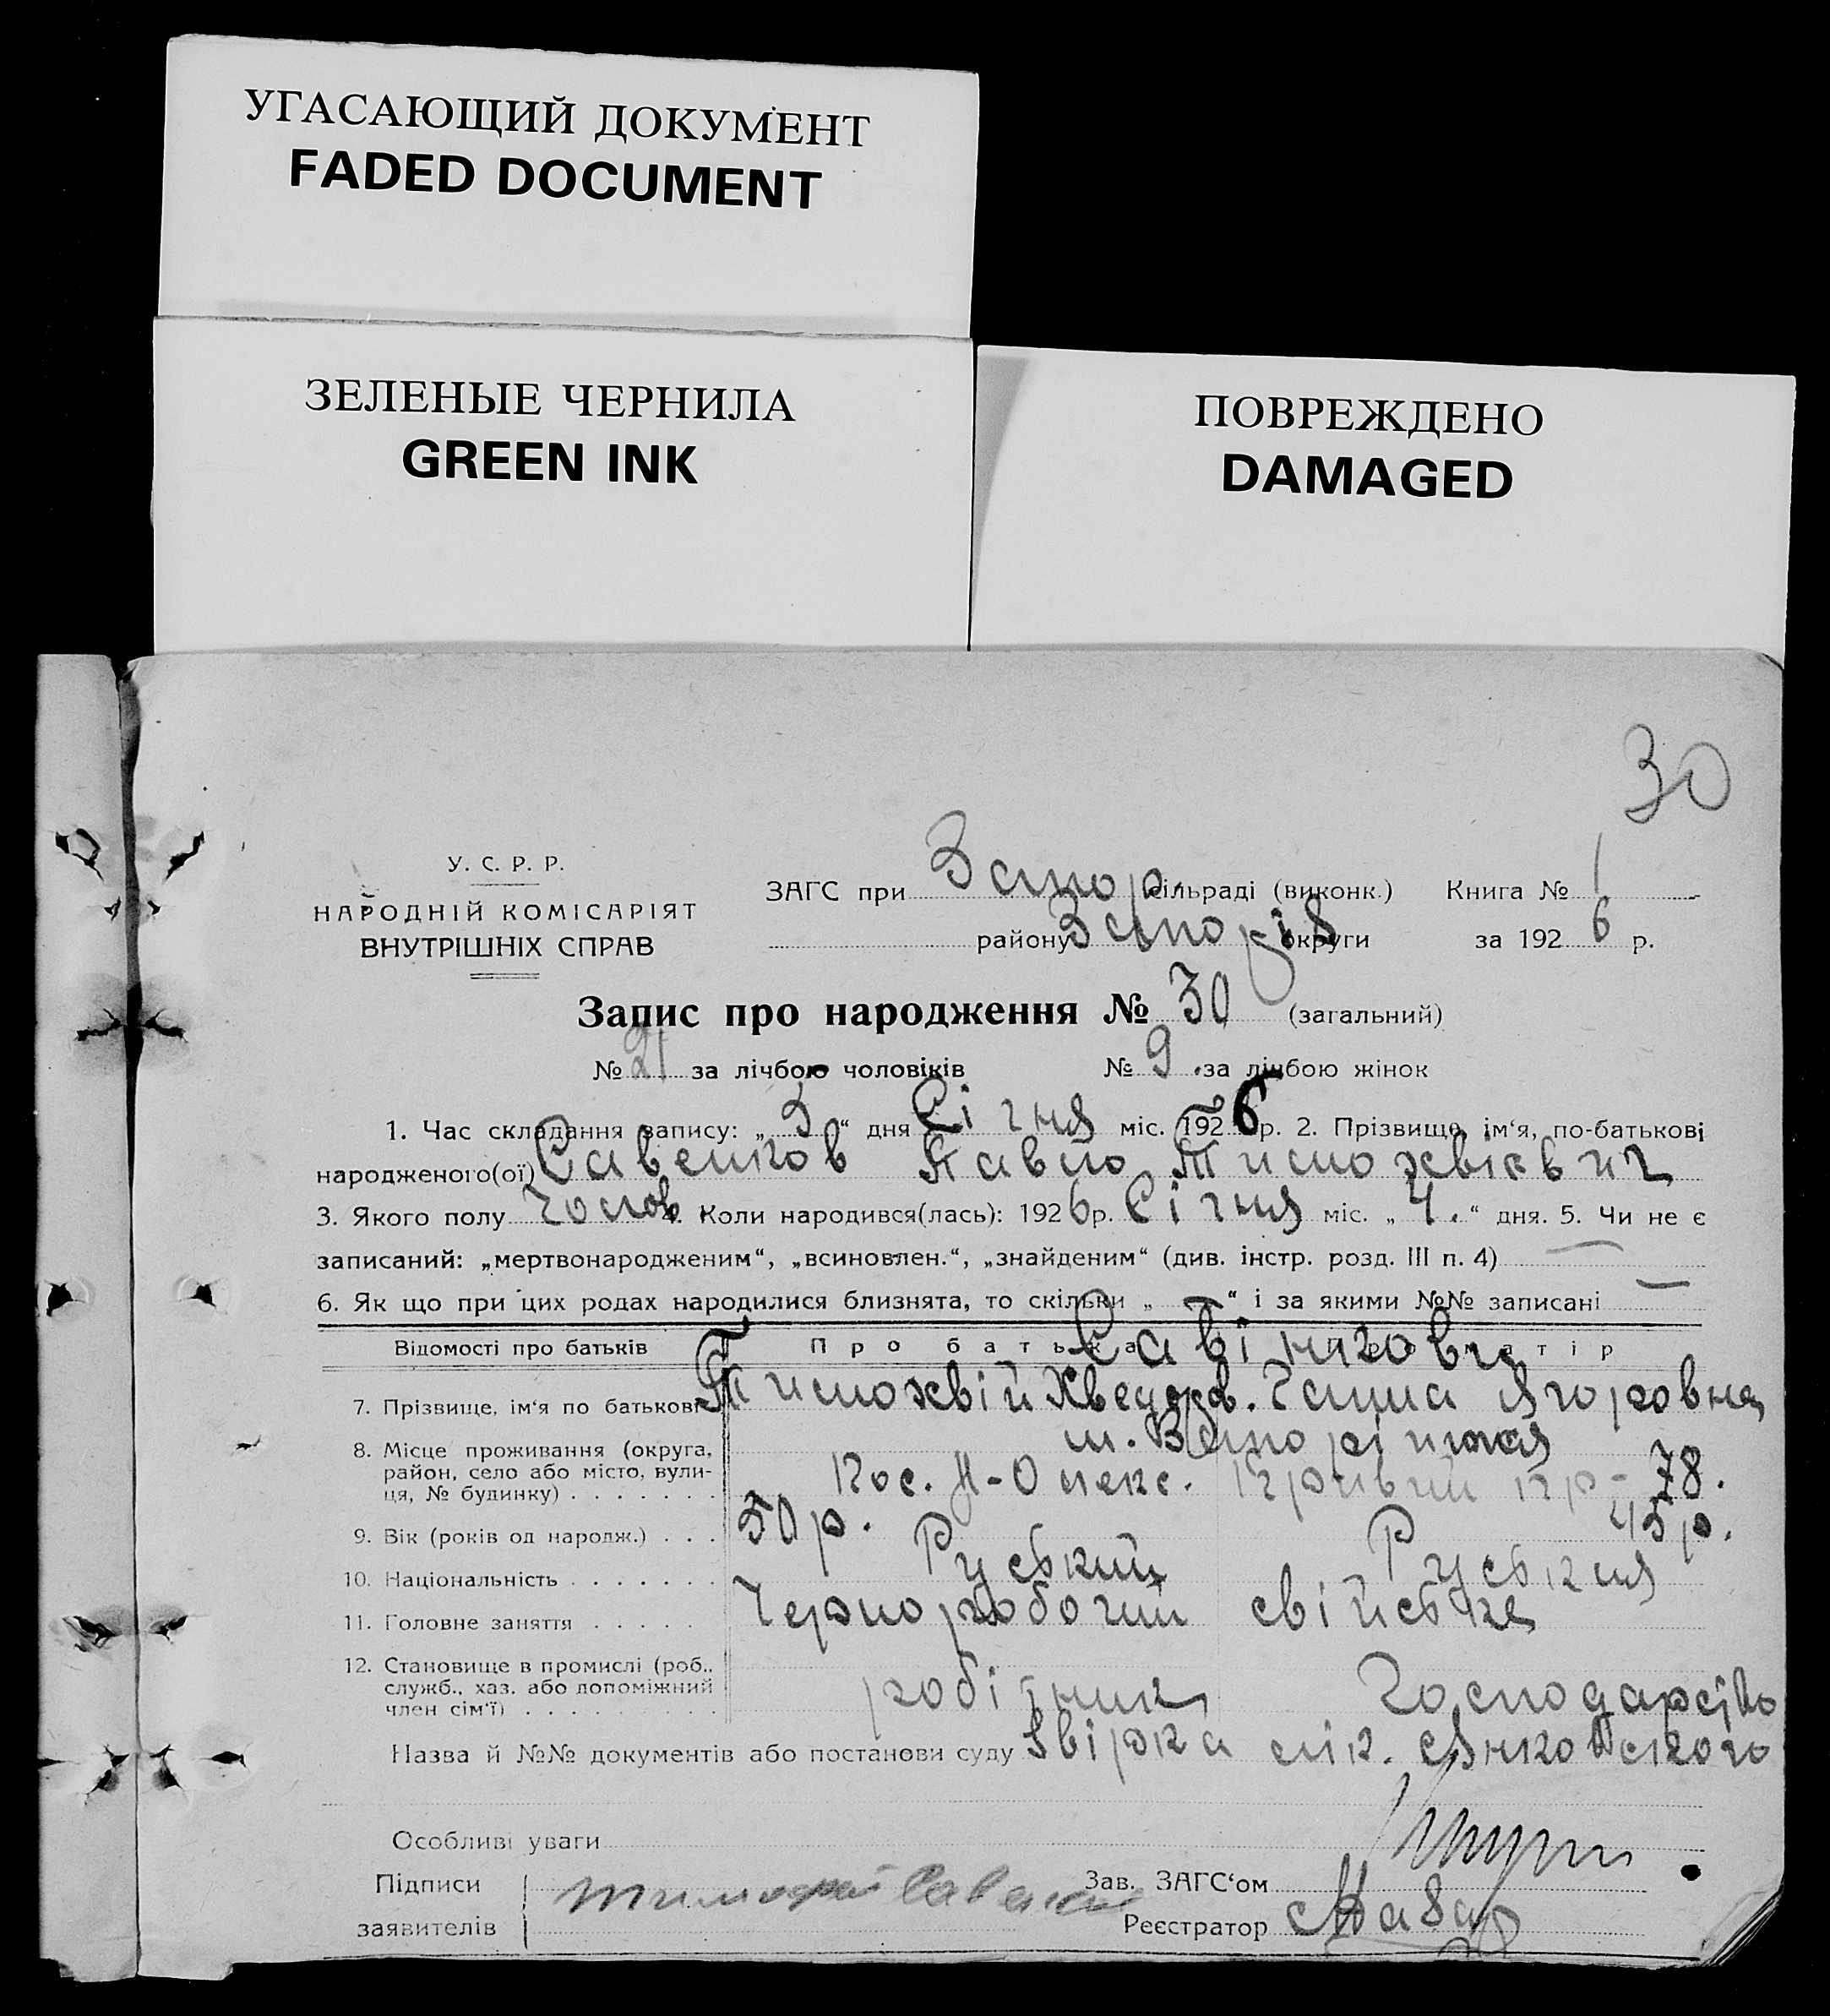 УГАСАЮЩИЙ ДОКУМЕНТ
FADED DOCUMENT
ЗЕЛЕНЫЕ ЧЕРНИЛА
GREEN INK
ПОВРЕЖДЕНО
DAMAGED
30
У. С. Р. Р.
НАРОДНІЙ КОМІСАРІЯТ
ВНУТРІШНІХ СПРАВ
ЗАГС при Запор. сільраді (виконк.) Книга № 1
району Запоріз округи за 1926 р.
Запис про народження № 30 (загальний)
№ 21 за лічбою чоловіків № 9 за лічбою жінок
1. Час складання запису: „ 5 “ дня Січня міс. 1926 р. 2. Прізвище, ім‘я, по-батькові
народженого(ої) Савенков Павло Тимохвієвич
3. Якого полу Чолов. 4. Коли народився(лась): 1926 р. Січня міс. „ 4. “ дня. 5. Чи не є
записаний: „мертвонародженим“, „всиновлен.“, „знайденим“ (див. інстр. розд. III п. 4) —
6. Як що при цих родах народилися близнята, то скільки „ — “ і за якими №№ записані —
Відомості про батьків Про батька Про матір
Савінкови
7. Прізвище, ім‘я по батькові Тимохвій Хведоров. Ганна Ягоровна
8. Місце проживання (округа, район, село або місто, вулиця, № будинку) м. Запоріжжя
Пос. Н-Олекс. Крывий пр - 78.
9. Вік (років од народж.) 50 р. 45 р.
10. Національність Руський Руськая
11. Головне заняття Чернорабочий свійське
12. Становище в промислі (роб., служб., хаз. або допоміжний член сім‘ї) робітник Господарство
Назва й №№ документів або постанови суду Звірка лік. Янковского
Особливі уваги
Підписи заявителів Тимофей Савенков
Зав. ЗАГС‘ом
Реєстратор